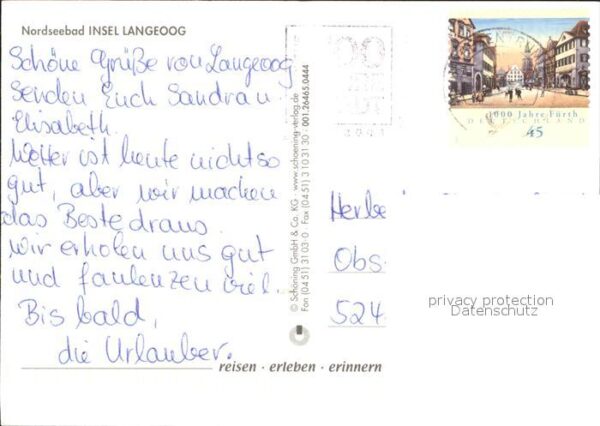 Nordseebad INSEL LANGEOOG
Schöne Grüße von Langeoog
senden Euch Sandra u.
Elisabeth.
Wetter ist heute nicht so
gut, aber wir machen
das Beste draus.
Wir erholen uns gut
und faulenzen viel.
Bis bald,
die Urlauber.
reisen · erleben · erinnern
© Schöning GmbH & Co. KG · www.schoening-verlag.de
Fon (04 51) 31 03-0 · Fax (04 51) 3 10 31 30 001.26465.0444
1000 Jahre Fürth
DEUTSCHLAND
45
Herbe
Obs
524
privacy protection
Datenschutz